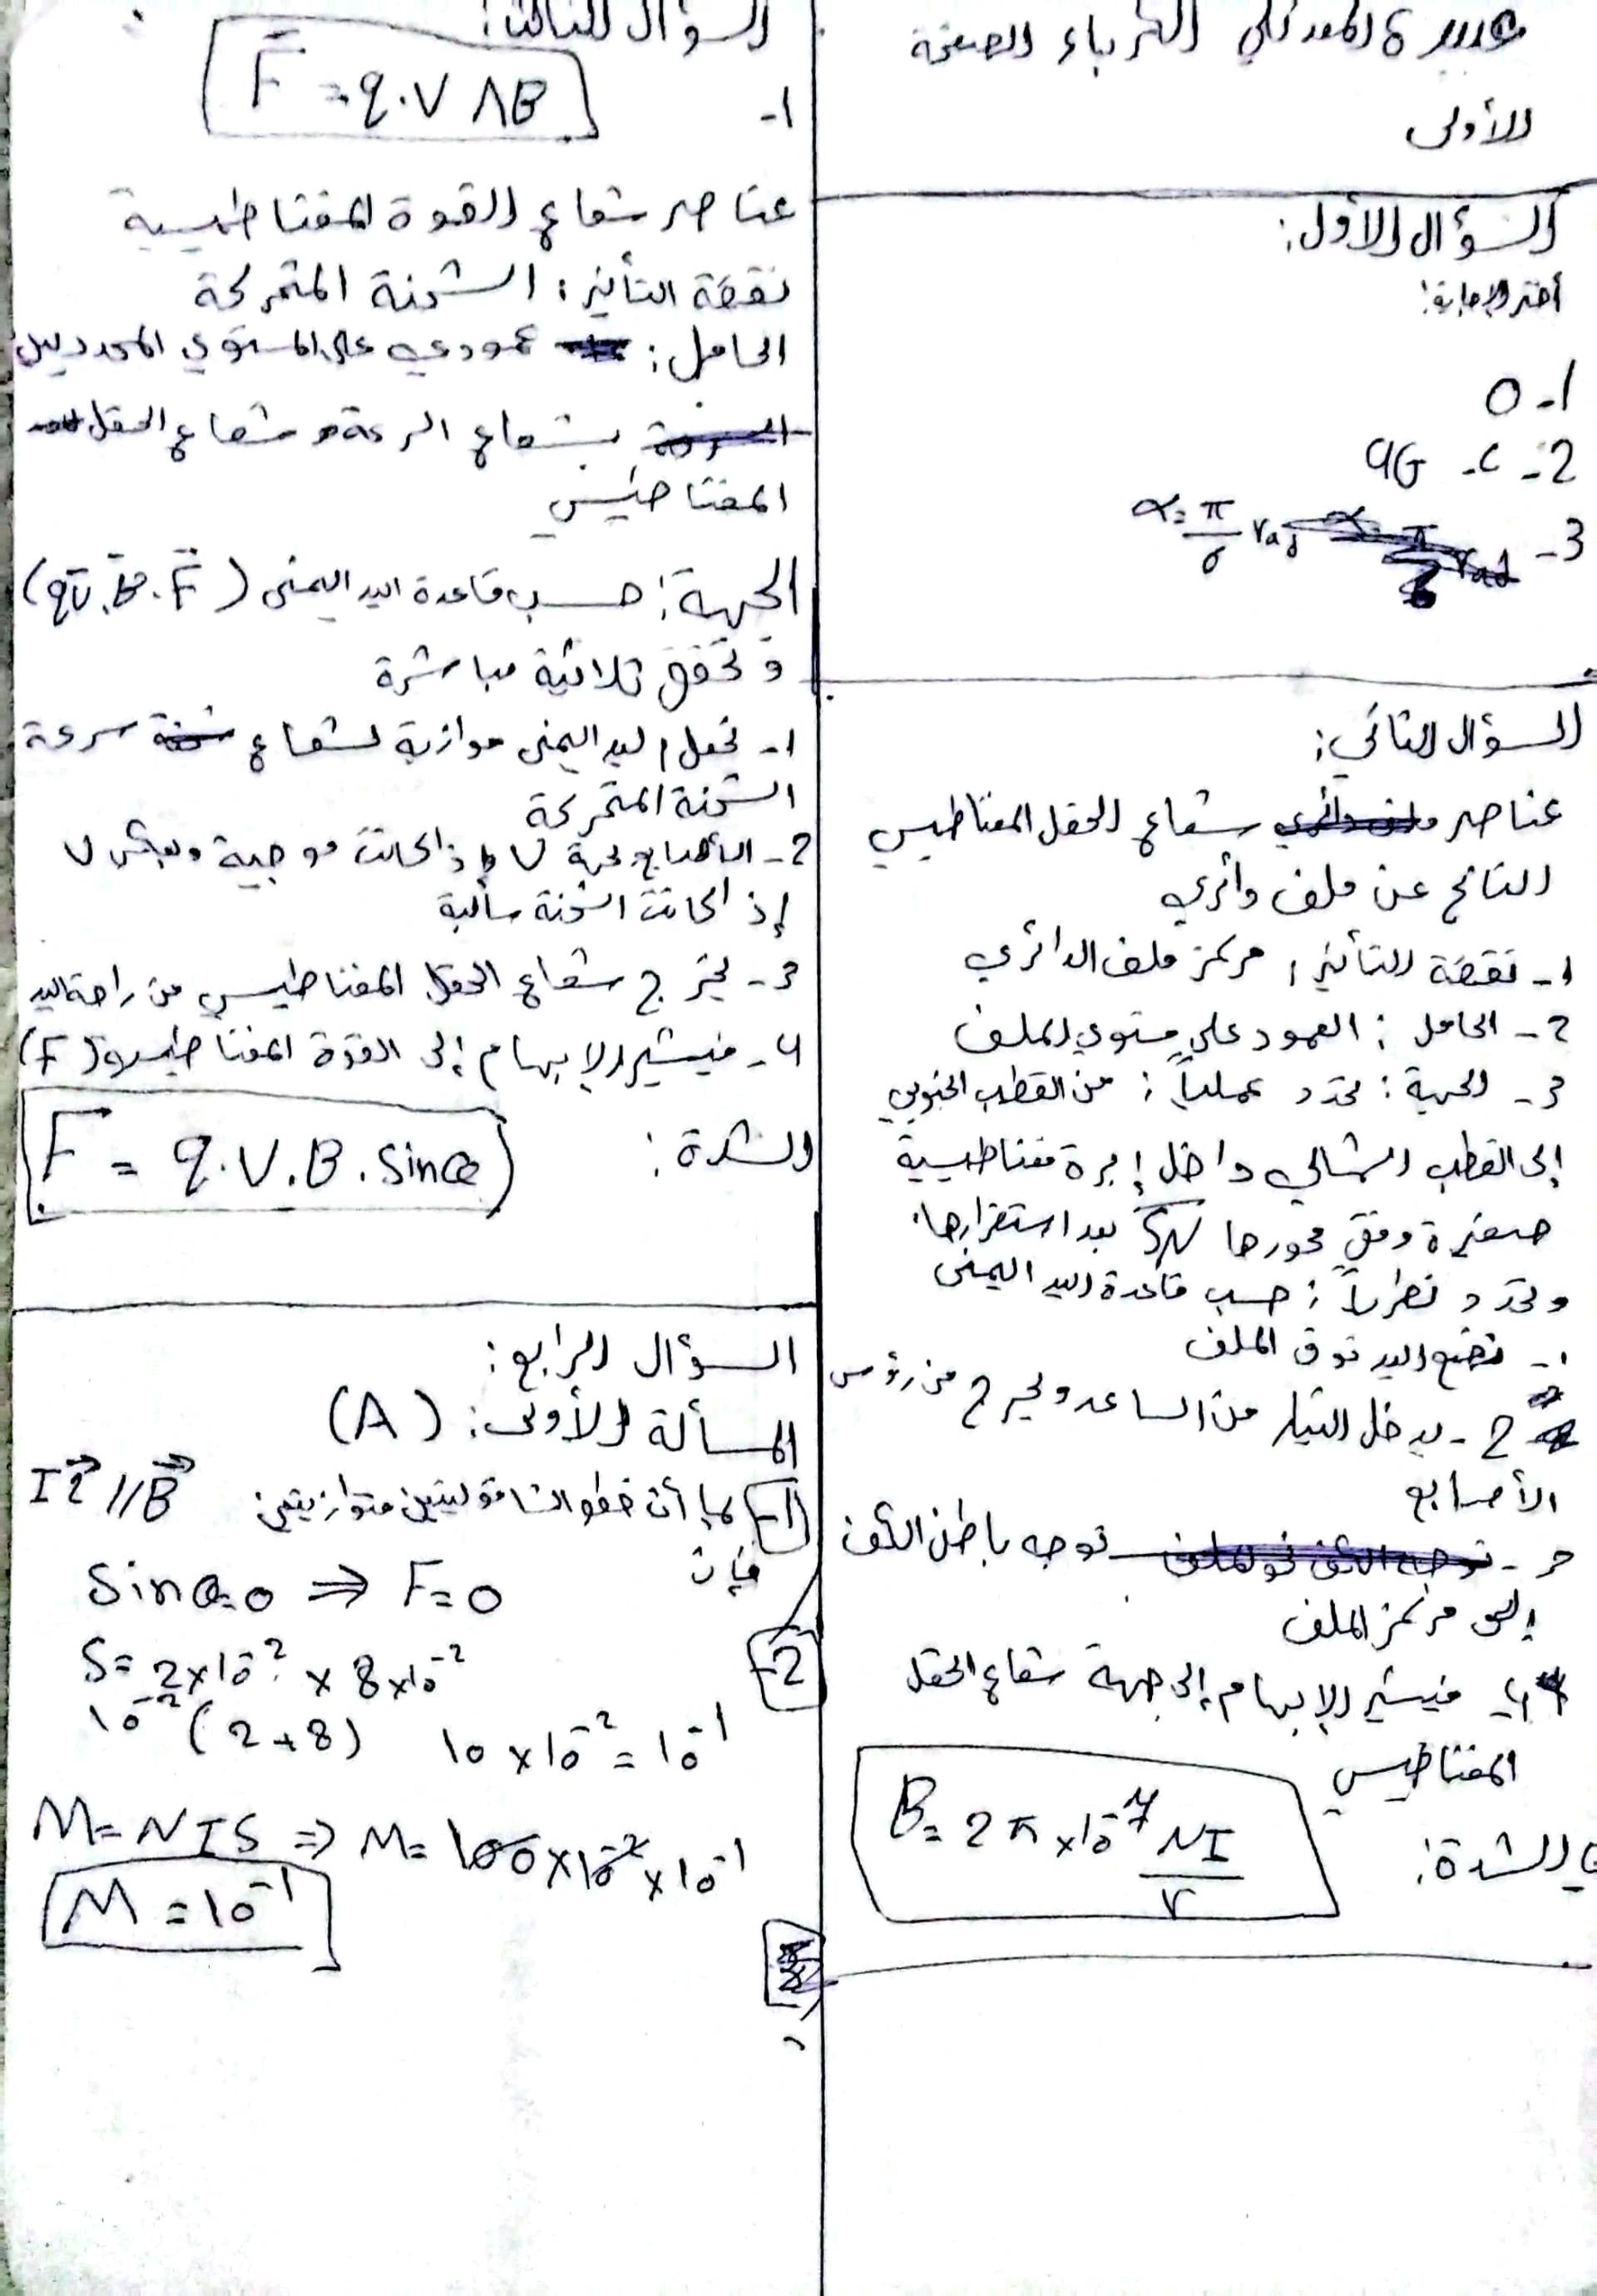 الكهرباء الصفحة
الأولى
السؤال الأول:
أختر الإجابة:
1- 0
2- c- 9G
3- α = π/6 rad
السؤال الثاني:
عناصر شعاع الحقل المغناطيسي
الناتج عن ملف دائري
1- نقطة التأثير: مركز ملف الدائري
2- الحامل: العمود على مستوي الملف
3- الجهة: تحدد عملياً: من القطب الجنوبي
إلى القطب الشمالي داخل إبرة مغناطيسية
صغيرة وفق محورها SN بعد استقرارها.
وتحدد نظرياً: حسب قاعدة اليد اليمنى
1- نضع اليد فوق الملف
2- يدخل التيار من الساعد ويخرج من رؤوس
الأصابع
3- نوجه باطن الكف
إلى مركز الملف
4- فيشير الإبهام إلى جهة شعاع الحقل
المغناطيسي
الشدة:
B = 2π×10⁻⁷ NI/r
السؤال الثالث:
1- F = q.V ΛB
عناصر شعاع القوة المغناطيسية
نقطة التأثير: الشحنة المتحركة
الحامل: عمودي على المستوي المحدد
بشعاع السرعة و شعاع الحقل
المغناطيسي
الجهة: حسب قاعدة اليد اليمنى (qV⃗.B⃗.F⃗)
و تحقق ثلاثية مباشرة
1- نجعل اليد اليمنى موازية لشعاع سرعة
الشحنة المتحركة
2- الأصابع بجهة v إذا كانت موجبة وبعكس v
إذ كانت الشحنة سالبة
3- يخرج شعاع الحقل المغناطيسي من راحة اليد
4- فيشير الإبهام إلى القوة المغناطيسية (F)
الشدة: F = q.V.B.Sinα
السؤال الرابع:
المسألة الأولى: (A)
1- بما أن متوازيتين IL⃗ // B⃗
فإن
Sinα=0 ⇒ F=0
2- S= 2×10⁻² × 8×10⁻²
10⁻² (2+8) 10×10⁻² = 10⁻¹
M=NIS ⇒ M= 100×10⁻²×10⁻¹
M = 10⁻¹